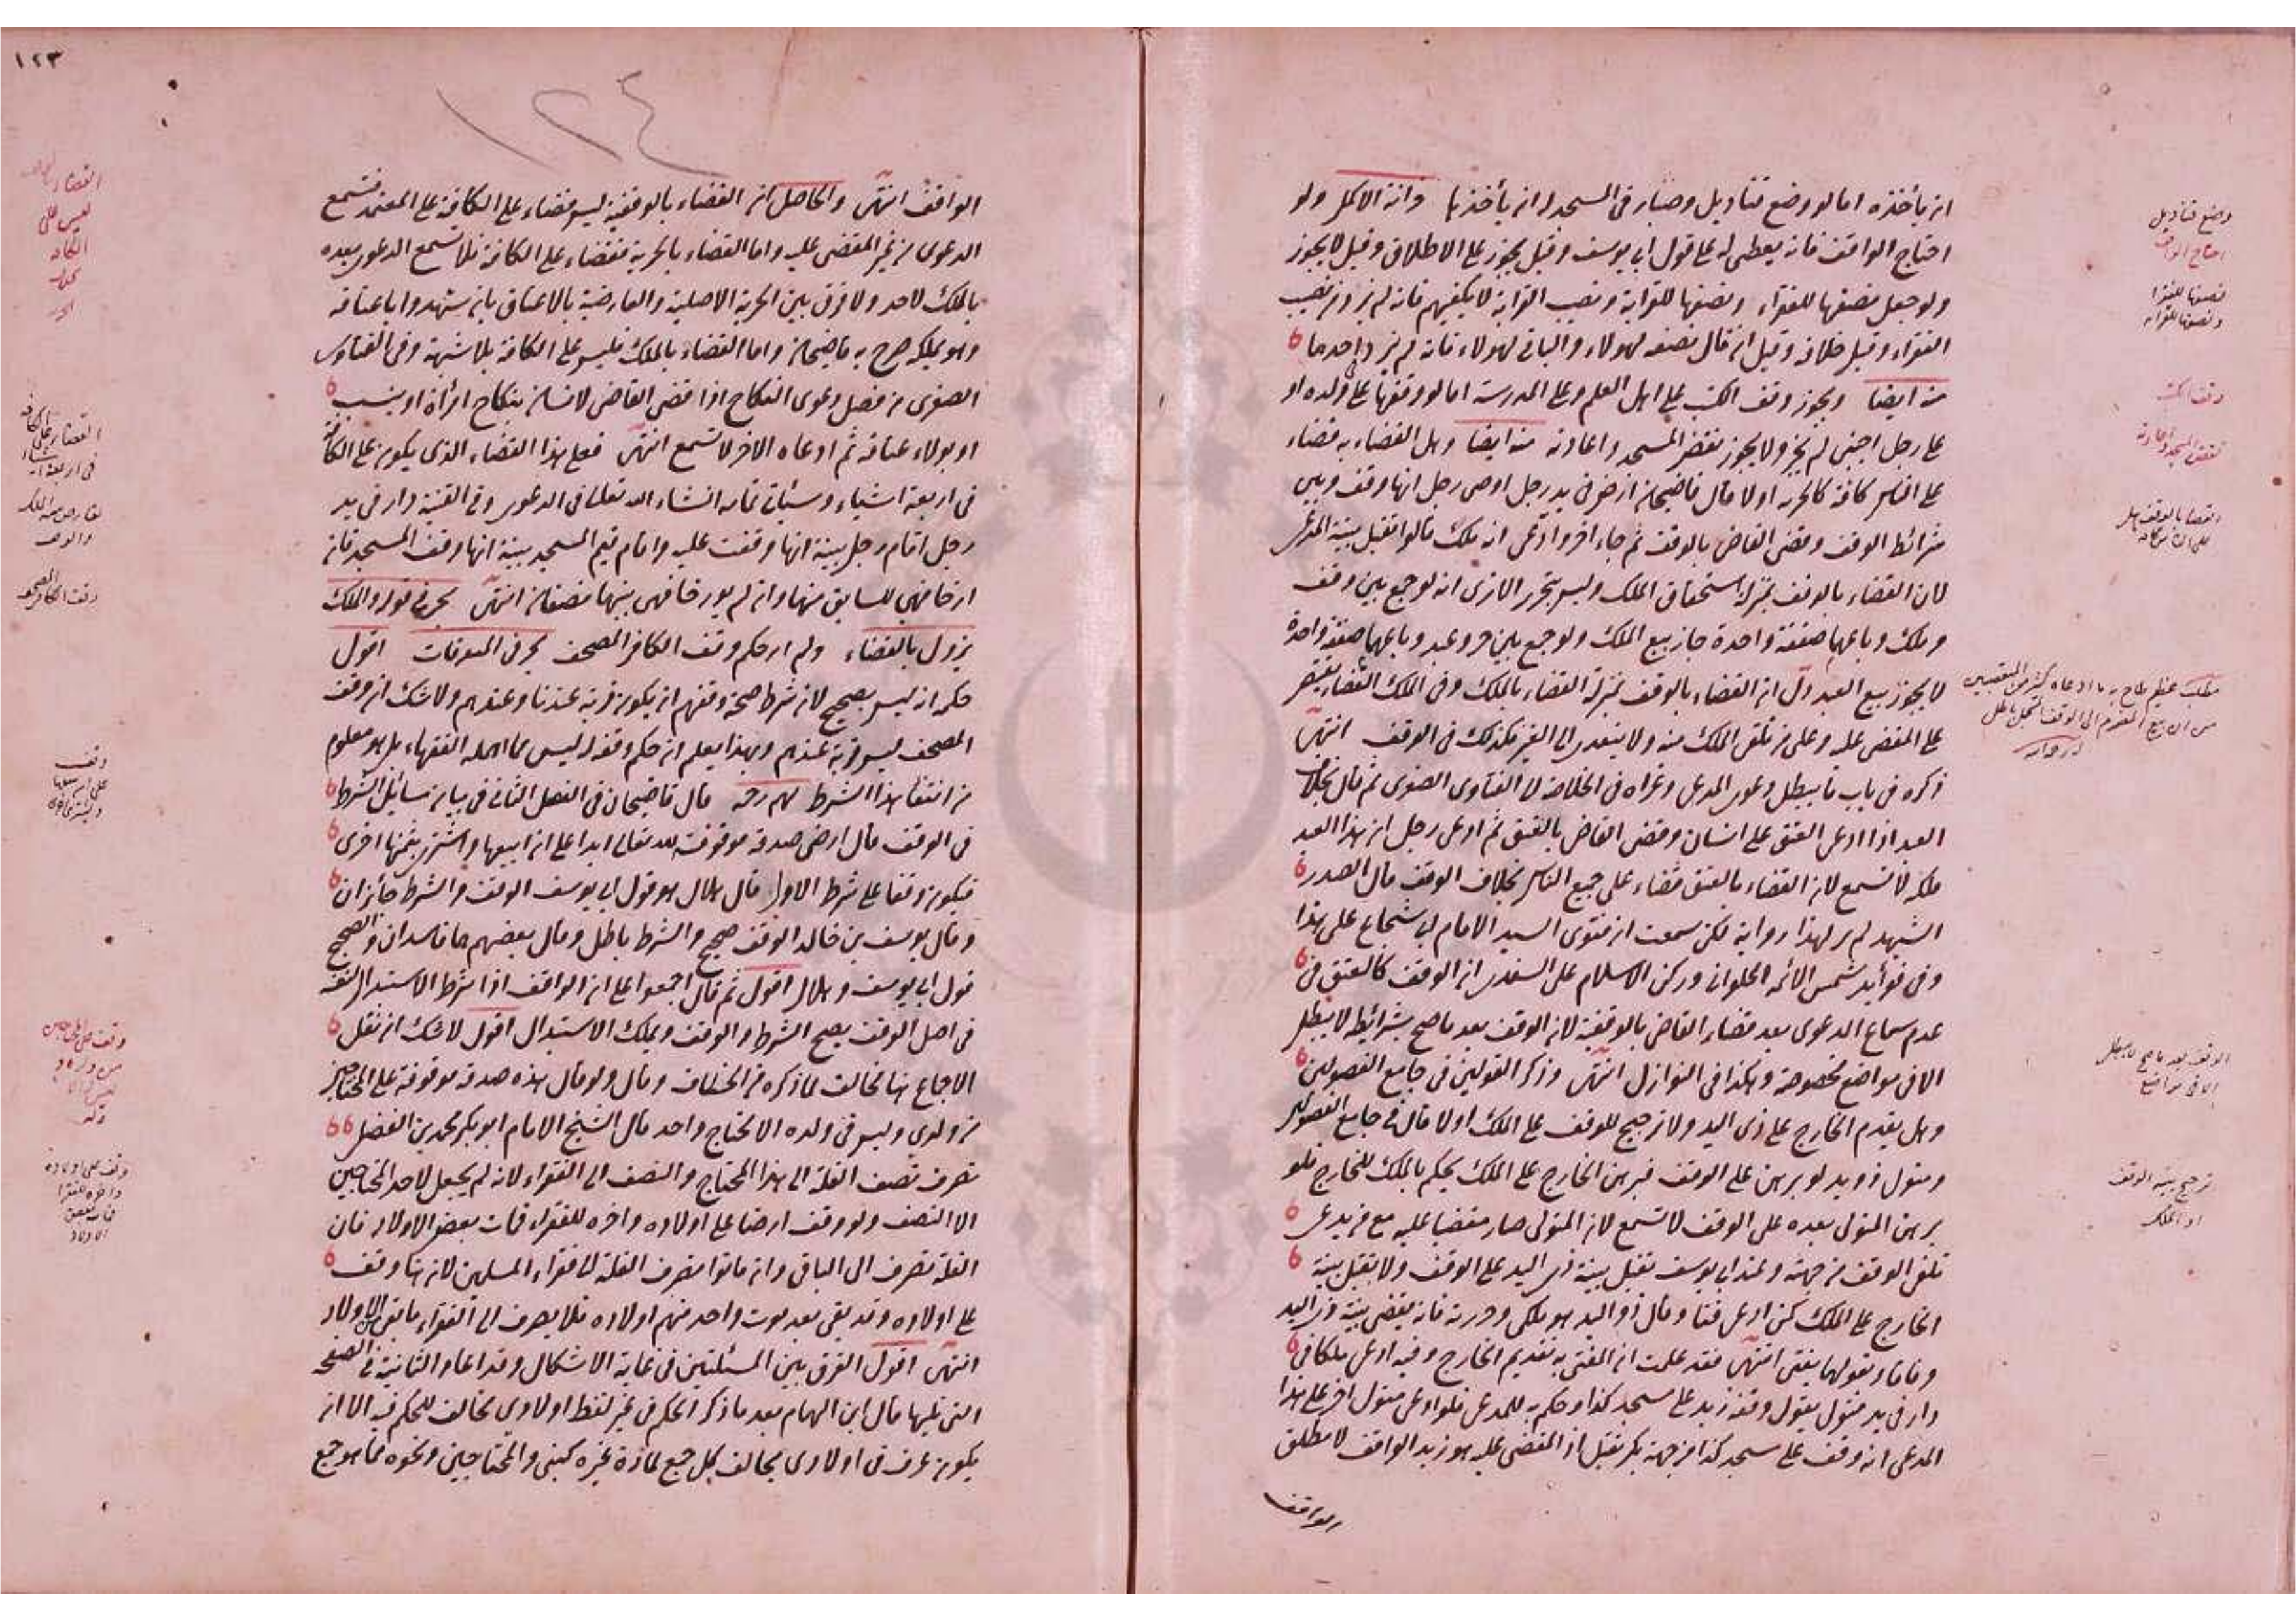 ان يأخذه اما لو وضع قناديل وحبار في المسجد له ان يأخذها وانه الاكمل ولو
احتاج الواقف فانه يعطى له على قول ابي يوسف وقيل يجوز على الاطلاق وقيل لا يجوز
ولو جعل نصفها للفقراء ونصفها للقرابة ونصيب القرابة لا يكفيهم فانه لم يزد من نصيب
الفقراء وقيل خلافه وقيل ان قال نصفه لهولاء والباقي لهولاء فانه لم يزد احدهما
منه ايضا ويجوز وقف الكتب على اهل العلم وعلى المدرسة اما لو وقفها على ولده او
على رجل اجنبي لم يجز ولا يجوز نقض المسجد واعادته منه ايضا وهل القضاء به قضاء
على الناس كافة كالحرية او لا قال قاضيخان ارض في يد رجل ادعى رجل انها وقف وبين
شرائط الوقف وقضى القاضي بالوقف ثم جاء اخر وادعى انه ملك قالوا تقبل بينة المدعي
لان القضاء بالوقف بمنزلة استحقاق الملك وليس بتحرير الا ترى انه لو جمع بين وقف
وملك وباعهما صفقة واحدة جاز بيع الملك ولو جمع بين حر وعبد وباعهما صفقة واحدة
لا يجوز بيع العبد دل ان القضاء بالوقف بمنزلة القضاء بالملك وفي الملك القضاء يقتصر
على المقضي عليه وعلى من تلقى الملك منه ولا يتعدى الى الغير فكذلك في الوقف انتهى
ذكره في باب ما يبطل دعوى المدعي وعزاه في الخلاصة الى الفتاوى الصغرى ثم قال بخلاف
العبد اذا ادعى العتق على انسان وقضى القاضي بالعتق ثم ادعى رجل ان هذا العبد
ملكه لا تسمع لان القضاء بالعتق قضاء على جميع الناس بخلاف الوقف قال الصدر
الشهيد لم نر لهذا رواية لكن سمعت ان فتوى السيد الامام ابي شجاع على هذا
وفي فوائد شمس الائمة الحلواني وركن الاسلام علي السغدي ان الوقف كالعتق في
عدم سماع الدعوى بعد قضاء القاضي بالوقفية لان الوقف بعد ما صح بشرائطه لا يبطل
الا في مواضع مخصوصة وهكذا في النوازل انتهى وذكر القولين في جامع الفصولين
وهل يقدم الخارج على ذي اليد ولا ترجيح للوقف على الملك او لا قال في جامع الفصولين
ومتول ذو يد لو برهن على الوقف فبرهن الخارج على الملك يحكم بالملك للخارج فلو
برهن المتولي بعده على الوقف لا تسمع لان المتولي صار مقضيا عليه مع من يدعي
تلقي الوقف من جهته وعند ابي يوسف تقبل بينة ذي اليد على الوقف ولا يقبل بينة
الخارج على الملك كمن ادعى قنا وقال ذو اليد هو ملكي وحررته فانه يقضى ببينة ذي اليد
وفاقا وبقولهما يفتى انتهى فقد علمت ان المفتى به تقديم الخارج وفيه ادعى ملكا في
دار في يد متول يقول وقفه زيد على مسجد كذا وحكم به للمدعي فلو ادعى متول اخر على هذا
المدعي انه وقف على مسجد كذا من جهة بكر تقبل اذ المقضي عليه هو زيد الواقف لا مطلق
الواقف
وضع قناديل
احتاج الواقف
نصفها للفقرا
ونصفها للقرابه
وقف الكتب
نقض المسجد واعادته
القضا بالوقف هل
الوقف بعد ما صح لا يبطل
الا في مواضع
ترجيح بينة الوقف
او الملك
١٢٣
١٢٤
الواقف انتهى والحاصل ان القضاء بالوقفية ليس قضاء على الكافة على المعتمد فتسمع
الدعوى من غير المقضي عليه واما القضاء بالحرية فقضاء على الكافة فلا تسمع الدعوى بعده
بالملك لاحد ولا فرق بين الحرية الاصلية والعارضية بالاعتاق بان شهدوا باعتاقه
وهو يملكه صرح به قاضيخان واما القضاء بالملك فليس على الكافة بلا شبهة وفي الفتاوى
الصغرى من فصل دعوى النكاح اذا قضى القاضي لانسان بنكاح امرأة او بنسب
او بولاء عتاقه ثم ادعاه الاخر لا تسمع انتهى فعلى هذا القضاء الذي يكون على الكافة
في اربعة اشياء وسيأتي تمامه انشاء الله تعالى في الدعوى وفي القنية دار في يد
رجل اقام رجل بينة انها وقفت عليه واقام قيم المسجد بينة انها وقف المسجد فان
ارخا فهي للسابق منهما وان لم يورخا فهي بينهما نصفان انتهى بحر في قوله والملك
يزول بالقضاء ولم ار حكم وقف الكافر المصحف بحر في المتفرقات اقول
حكمه انه ليس بصحيح لان شرط صحة وقفهم ان يكون قربة عندنا وعندهم ولا شك ان وقف
المصحف ليس قربة عندهم وبهذا يعلم ان حكم وقفه ليس مما اهمله الفقهاء بل هو معلوم
من انتفا هذا الشرط قال قاضيخان في الفصل الثاني في بيان مسائل الشرط
في الوقف قال ارضي صدقة موقوفة لله تعالى ابدا على ان ابيعها واشتري بثمنها اخرى
فيكون وقفا على شرط الاول قال هلال هو قول ابي يوسف الوقف والشرط جائزان
وقال يوسف بن خالد الوقف صحيح والشرط باطل وقال بعضهم هما فاسدان والصحيح
قول ابي يوسف وهلال اقول ثم قال اجمعوا على ان الواقف اذا شرط الاستبدال لنفسه
في اصل الوقف يصح الشرط والوقف ويملك الاستبدال اقول لا شك ان نقل
الاجماع هنا مخالف لما ذكره من الخلاف وقال ولو قال هذه صدقة موقوفة على المحتاجين
من ولدي وليس في ولده الا محتاج واحد قال الشيخ الامام ابو بكر محمد بن الفضل
تصرف نصف الغلة الى هذا المحتاج والنصف الى الفقراء لانه لم يجعل لاحد المحتاجين
الا النصف ولو وقف ارضا على اولاده واخره للفقراء فمات بعض الاولاد فان
الغلة تصرف الى الباقي وان ماتوا تصرف الغلة الى فقراء المسلمين لان هنا وقف
على اولاده وقد بقي بعد موت واحد منهم اولاده فلا يصرف الى الفقراء ما بقي الاولاد
انتهى اقول الفرق بين المسئلتين في غاية الاشكال وقد اعاد الثانية في الصفحة
التي تليها قال ابن الهمام بعد ما ذكر الحكم في غير لفظ اولادي مخالف للحكم فيه الا ان
يكون عرف في اولادي يخالف كل جمع لمادة غيره كبنى والمحتاجين ونحوه مما هو جمع
القضا
ليس على
الكافه
وقف
وقف على المحتاجين
من ولده
وقف على اولاده
واخره للفقرا
فمات بعض
الاولاد